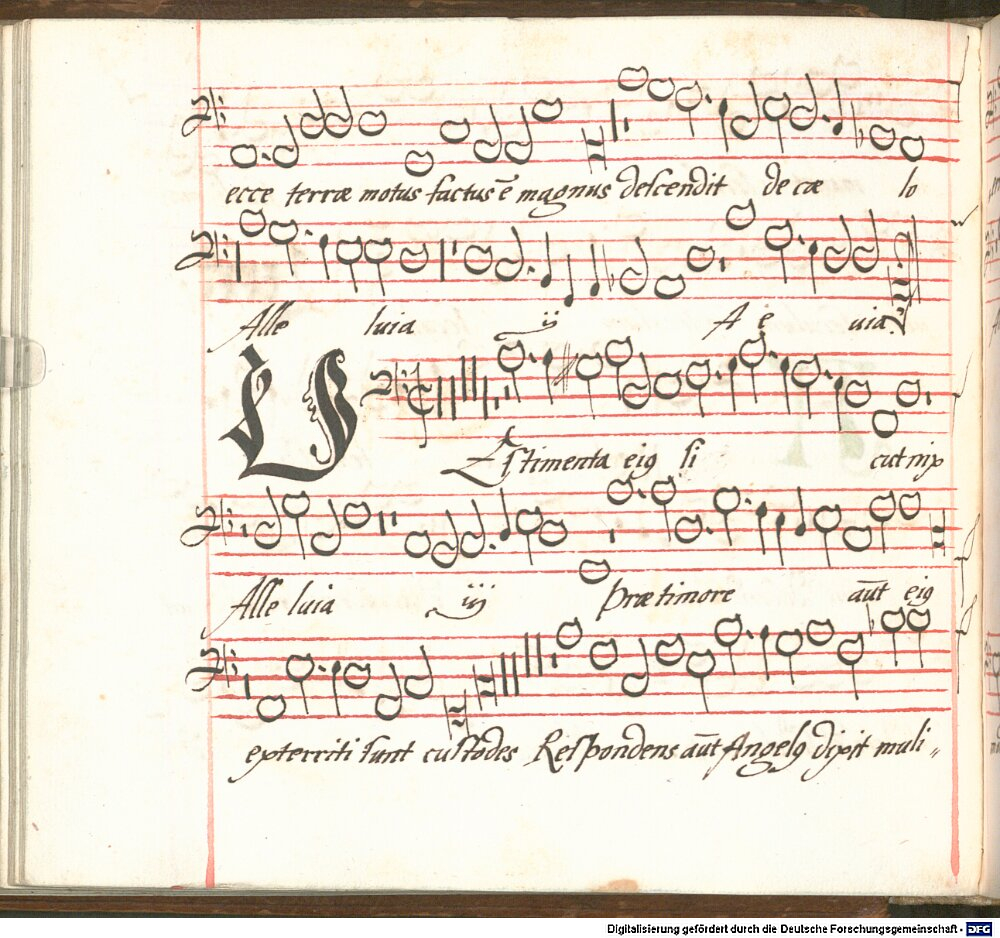 ecce terræ motus factus ē magnus descendit de cæ lo
Alle luia ij A e uia
VEstimenta ei9 si cut nix
Alle luia iij Præ timore aūt ei9
exterriti sunt custodes Respondens aūt Angel9 dixit muli„
Digitalisierung gefördert durch die Deutsche Forschungsgemeinschaft - DFG